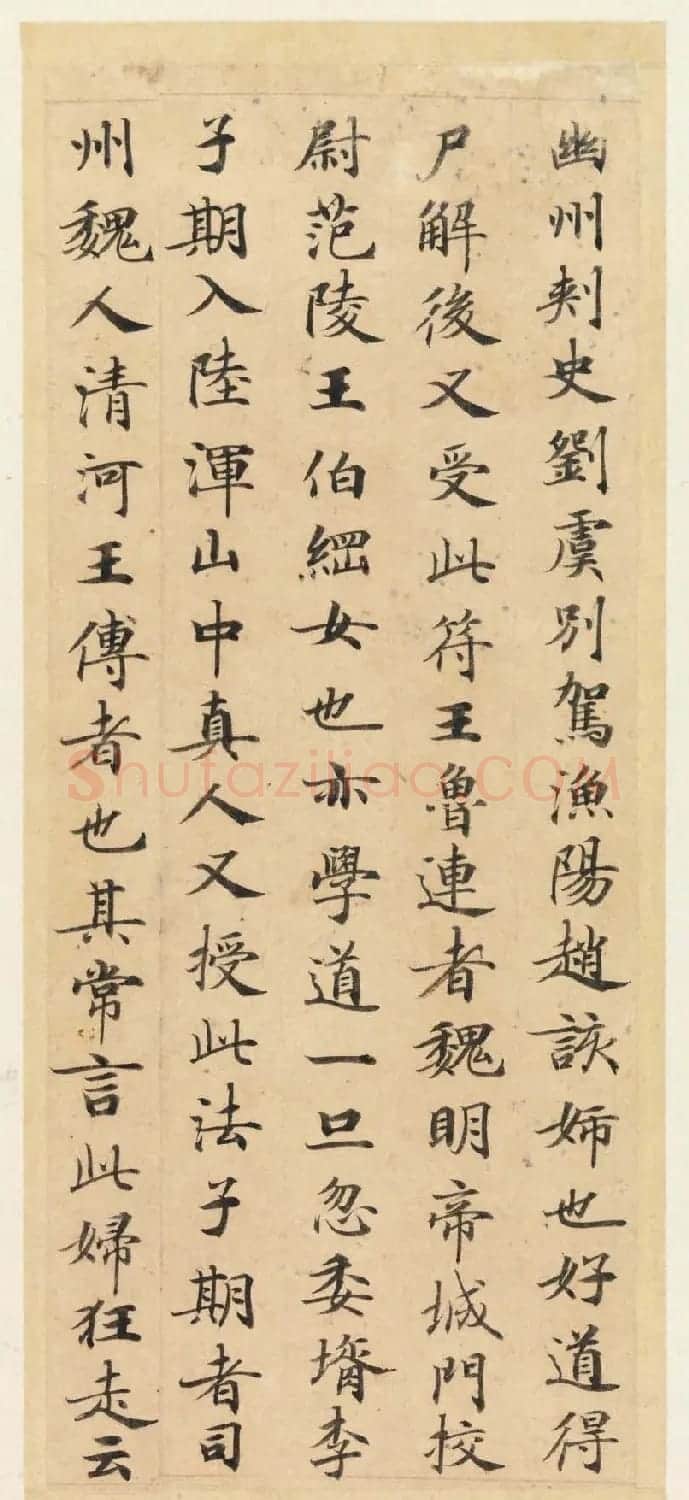 幽州刺史劉虞別駕漁陽趙該姊也好道得
尸解後又受此符王魯連者魏明帝城門校
尉范陵王伯綱女也亦學道一旦忽委壻李
子期入陸渾山中真人又授此法子期者司
州魏人清河王傅者也其常言此婦狂走云
Shufaziliao.COM